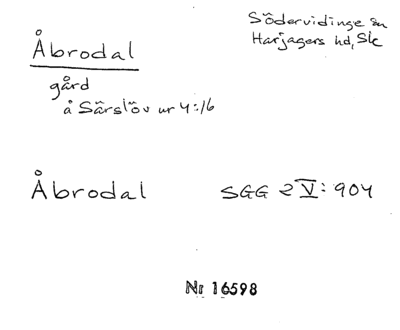 Åbrodal
Södervidinge sn
Harjagers hd, Sk
gård
å Särslöv nr 4:16
Åbrodal SGG 2 V: 904
Nr 16598